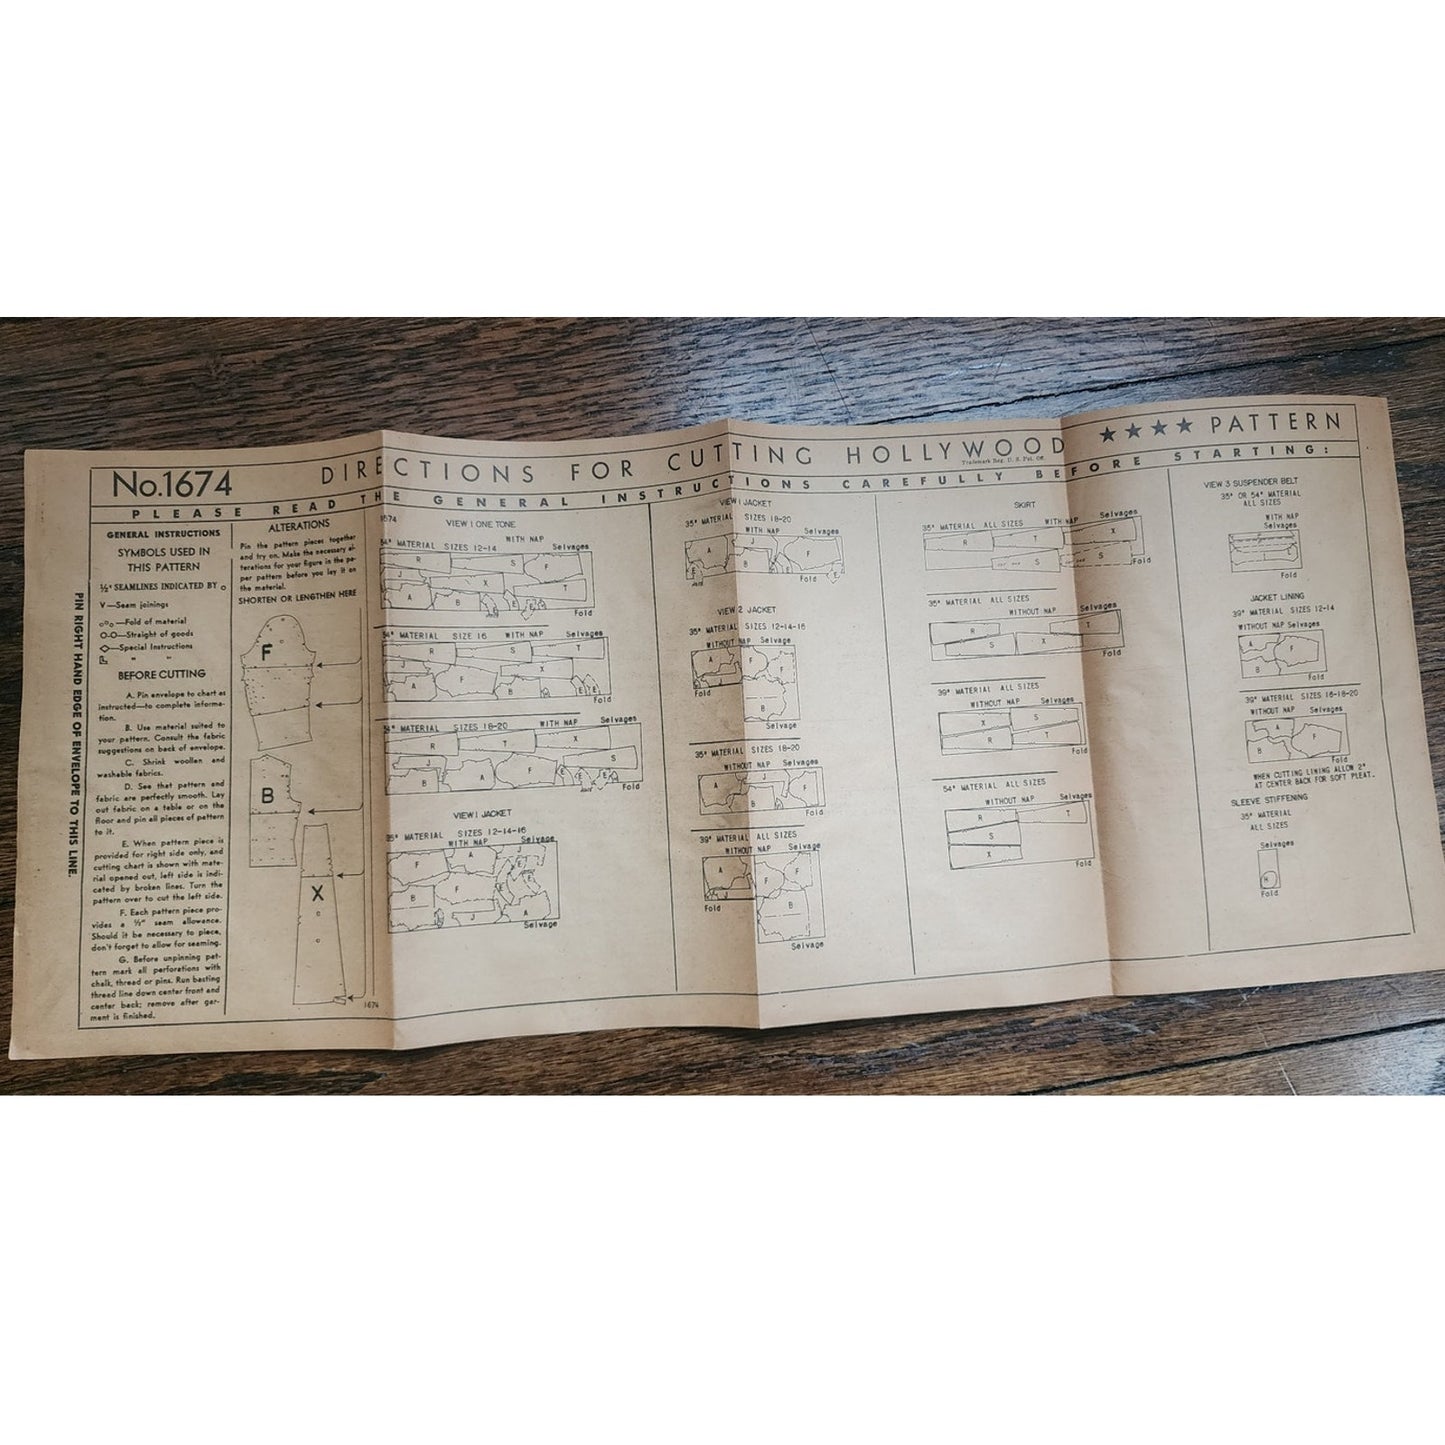 No.1674
DIRECTIONS FOR CUTTING HOLLYWOOD ★★★★ PATTERN
Trademark Reg. U. S. Pat. Off.
PLEASE READ THE GENERAL INSTRUCTIONS CAREFULLY BEFORE STARTING:
PIN RIGHT HAND EDGE OF ENVELOPE TO THIS LINE.
GENERAL INSTRUCTIONS
SYMBOLS USED IN
THIS PATTERN
½" SEAMLINES INDICATED BY o
V—Seam joinings
oOo—Fold of material
O-O—Straight of goods
◇—Special Instructions
" "
BEFORE CUTTING
A. Pin envelope to chart as
instructed—to complete informa-
tion.
B. Use material suited to
your pattern. Consult the fabric
suggestions on back of envelope.
C. Shrink woollen and
washable fabrics.
D. See that pattern and
fabric are perfectly smooth. Lay
out fabric on a table or on the
floor and pin all pieces of pattern
to it.
E. When pattern piece is
provided for right side only, and
cutting chart is shown with mate-
rial opened out, left side is indi-
cated by broken lines. Turn the
pattern over to cut the left side.
F. Each pattern piece pro-
vides a ½" seam allowance.
Should it be necessary to piece,
don't forget to allow for seaming.
G. Before unpinning pat-
tern mark all perforations with
chalk, thread or pins. Run basting
thread line down center front and
center back; remove after gar-
ment is finished.
ALTERATIONS
Pin the pattern pieces together
and try on. Make the necessary al-
terations for your figure in the pa-
per pattern before you lay it on
the material.
SHORTEN OR LENGTHEN HERE
F
B
X
1674
1674
VIEW I ONE TONE
54" MATERIAL SIZES 12-14
WITH NAP
Selvages
R
S
F
J
X
T
A
B
E
E
Fold
54" MATERIAL SIZE 16 WITH NAP Selvages
R
S
T
J
X
A
F
B
E
E
Fold
54" MATERIAL SIZES 18-20 WITH NAP Selvages
R
T
X
J
S
B
A
F
E
E
E
Fold
VIEW I JACKET
35" MATERIAL SIZES 12-14-16
WITH NAP Selvage
F
A
E
E
F
E
B
J
A
Selvage
VIEW I JACKET
35" MATERIAL SIZES 18-20
WITH NAP Selvages
A
J
F
B
Fold
E
VIEW 2 JACKET
35" MATERIAL SIZES 12-14-16
WITHOUT NAP Selvage
A
F
F
J
Fold
B
Selvage
35" MATERIAL SIZES 18-20
WITHOUT NAP Selvages
A
J
F
B
Fold
39" MATERIAL ALL SIZES
WITHOUT NAP Selvage
A
F
F
J
Fold
B
Selvage
SKIRT
35" MATERIAL ALL SIZES WITH NAP Selvages
R
T
X
S
S
Fold
35" MATERIAL ALL SIZES
WITHOUT NAP Selvages
R
T
S
X
Fold
39" MATERIAL ALL SIZES
WITHOUT NAP Selvages
X
S
R
T
Fold
54" MATERIAL ALL SIZES
WITHOUT NAP Selvages
R
T
S
X
Fold
VIEW 3 SUSPENDER BELT
35" OR 54" MATERIAL
ALL SIZES
WITH NAP
Selvages
Fold
JACKET LINING
39" MATERIAL SIZES 12-14
WITHOUT NAP Selvages
A
F
B
Fold
39" MATERIAL SIZES 16-18-20
WITHOUT NAP Selvages
A
B
F
Fold
WHEN CUTTING LINING ALLOW 2"
AT CENTER BACK FOR SOFT PLEAT.
SLEEVE STIFFENING
35" MATERIAL
ALL SIZES
Selvages
H
Fold